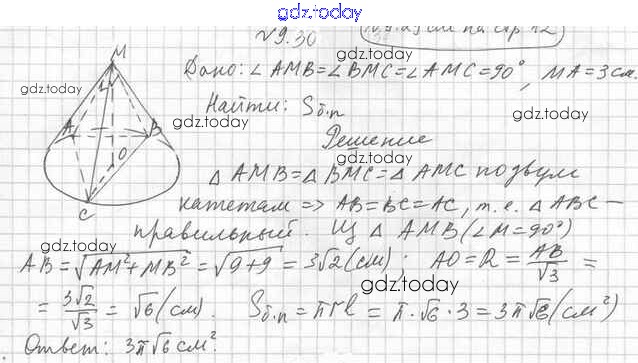 gdz.today
№9.30
Дано: ∠AMB=∠BMC=∠AMC=90°, MA=3см.
Найти: Sб.п
Решение
△AMB=△BMC=△AMC по двум
катетам ⇒ AB=BC=AC, т.е. △ABC –
правильный. Из △AMB (∠M=90°)
AB=√AM²+MB² = √9+9 = 3√2 (см); AO=R=AB/√3 =
= 3√2/√3 = √6 (см). Sб.п = πrl = π·√6·3 = 3π√6 (см²)
Ответ: 3π√6 см².
M
A
B
O
C
gdz.today
gdz.today
gdz.today
gdz.today
gdz.today
gdz.today
gdz.today
gdz.today
gdz.today
gdz.today